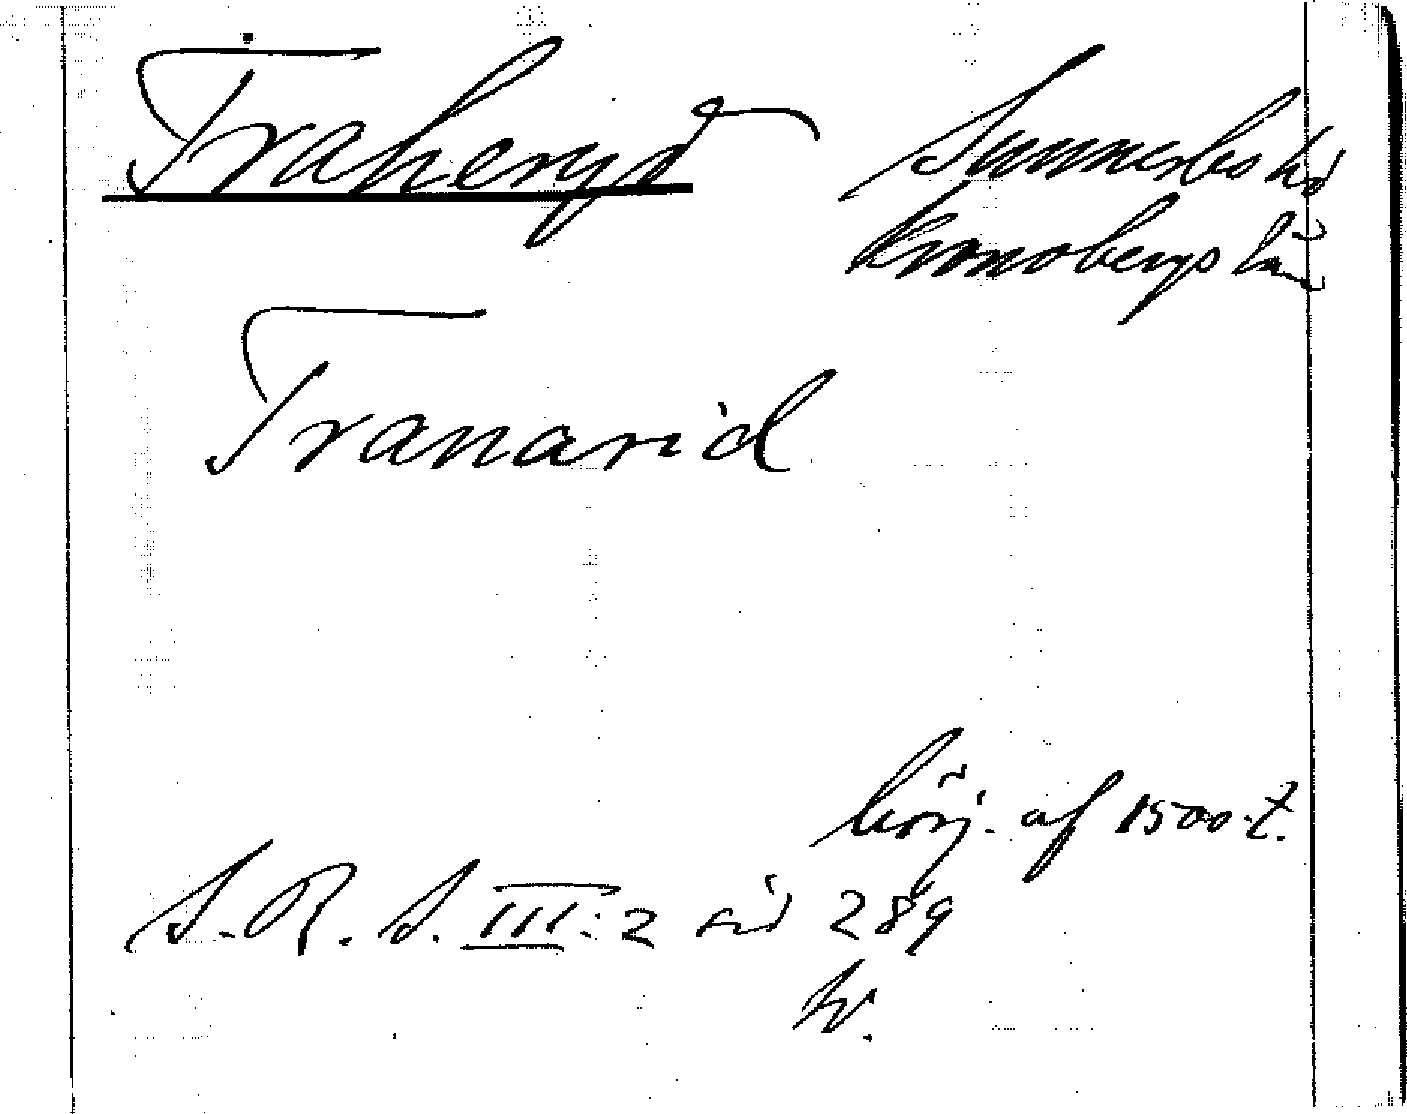 Traheryd
Sunnerbo hd
Kronobergs län
Tranarid
börj. af 1500-t.
S. R. S. III: 2 sid 289